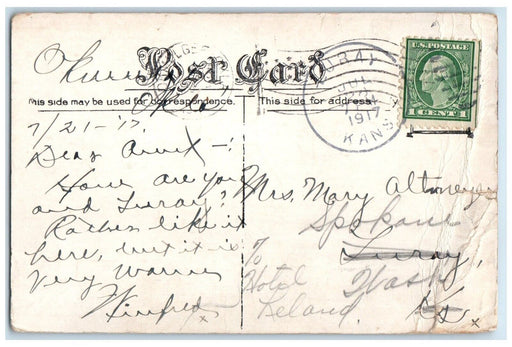 Post Card
This side may be used for correspondence.
This side for address
Okla
7/21-'17.
Dear Aunt -:
How are you
and Luray?
Rather like it
here, but it is
very warm
Winfred
LURAY
JUL
1917
KANS.
U.S. POSTAGE
1 CENT 1
Mrs. Mary
Spokane
Luray,
Wash
Ks.
%
Hotel
Leland.